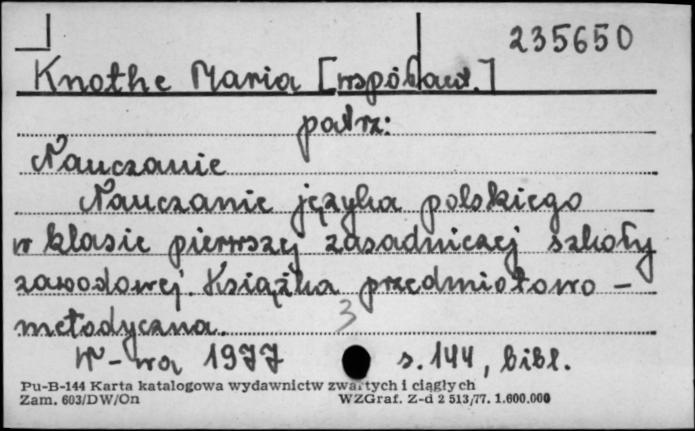 235650
Knothe Maria [współaut.]
patrz:
Nauczanie
Nauczanie języka polskiego
w klasie pierwszej zasadniczej szkoły
zawodowej. Książka przedmiotowo -
metodyczna.
3
W-wa 1977 s. 144, bibl.
Pu-B-144 Karta katalogowa wydawnictw zwartych i ciągłych
Zam. 603/DW/On WZGraf. Z-d 2 513/77. 1.600.000